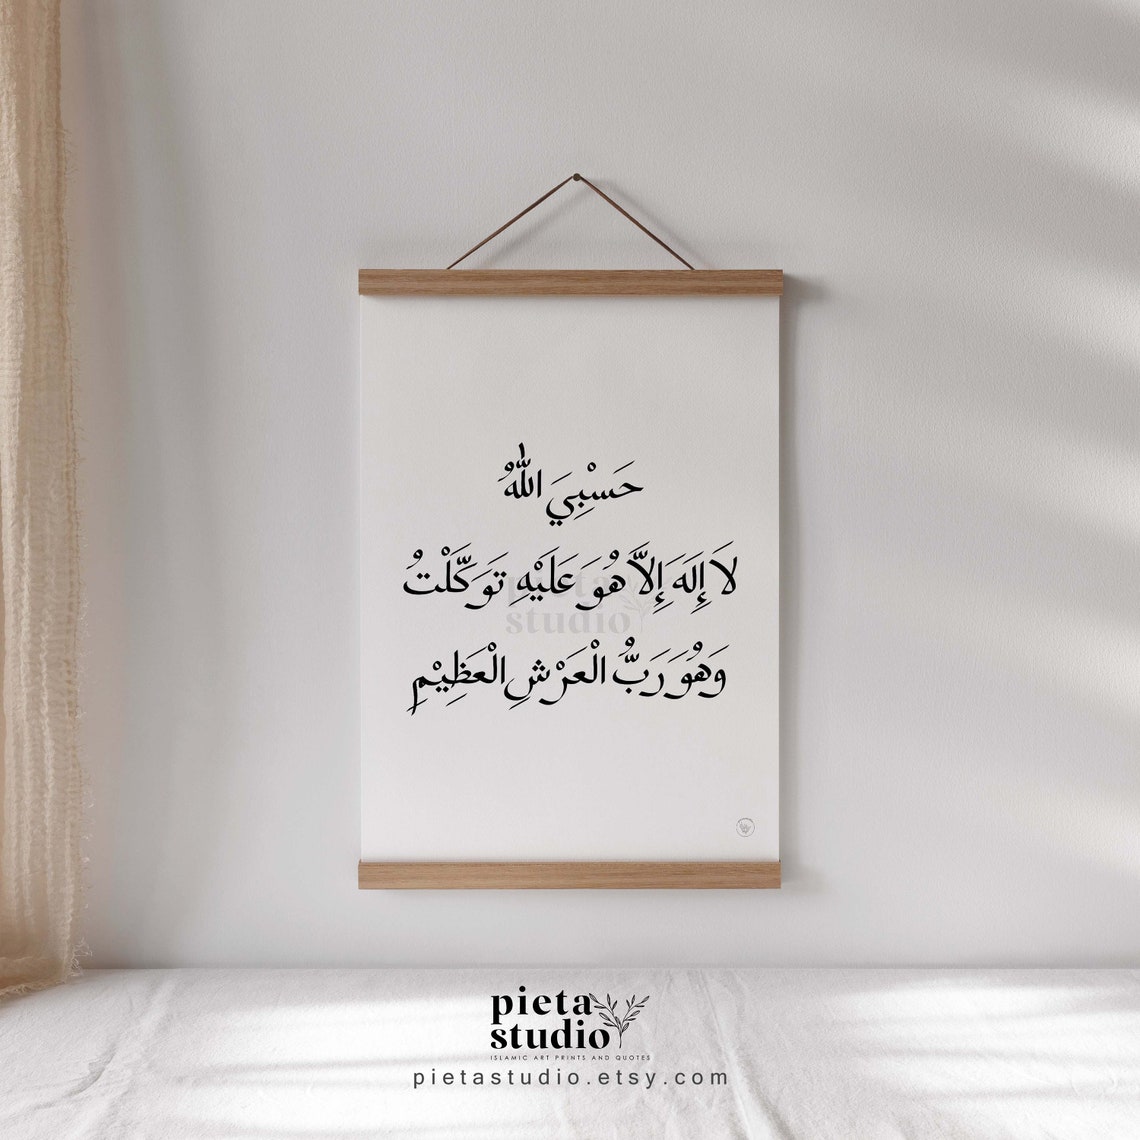 حَسْبِيَ اللّٰهُ
لَا إِلَهَ إِلَّا هُوَ عَلَيْهِ تَوَكَّلْتُ
وَهُوَ رَبُّ الْعَرْشِ الْعَظِيْمِ
pieta
studio
pieta
studio
ISLAMIC ART PRINTS AND QUOTES
pietastudio.etsy.com